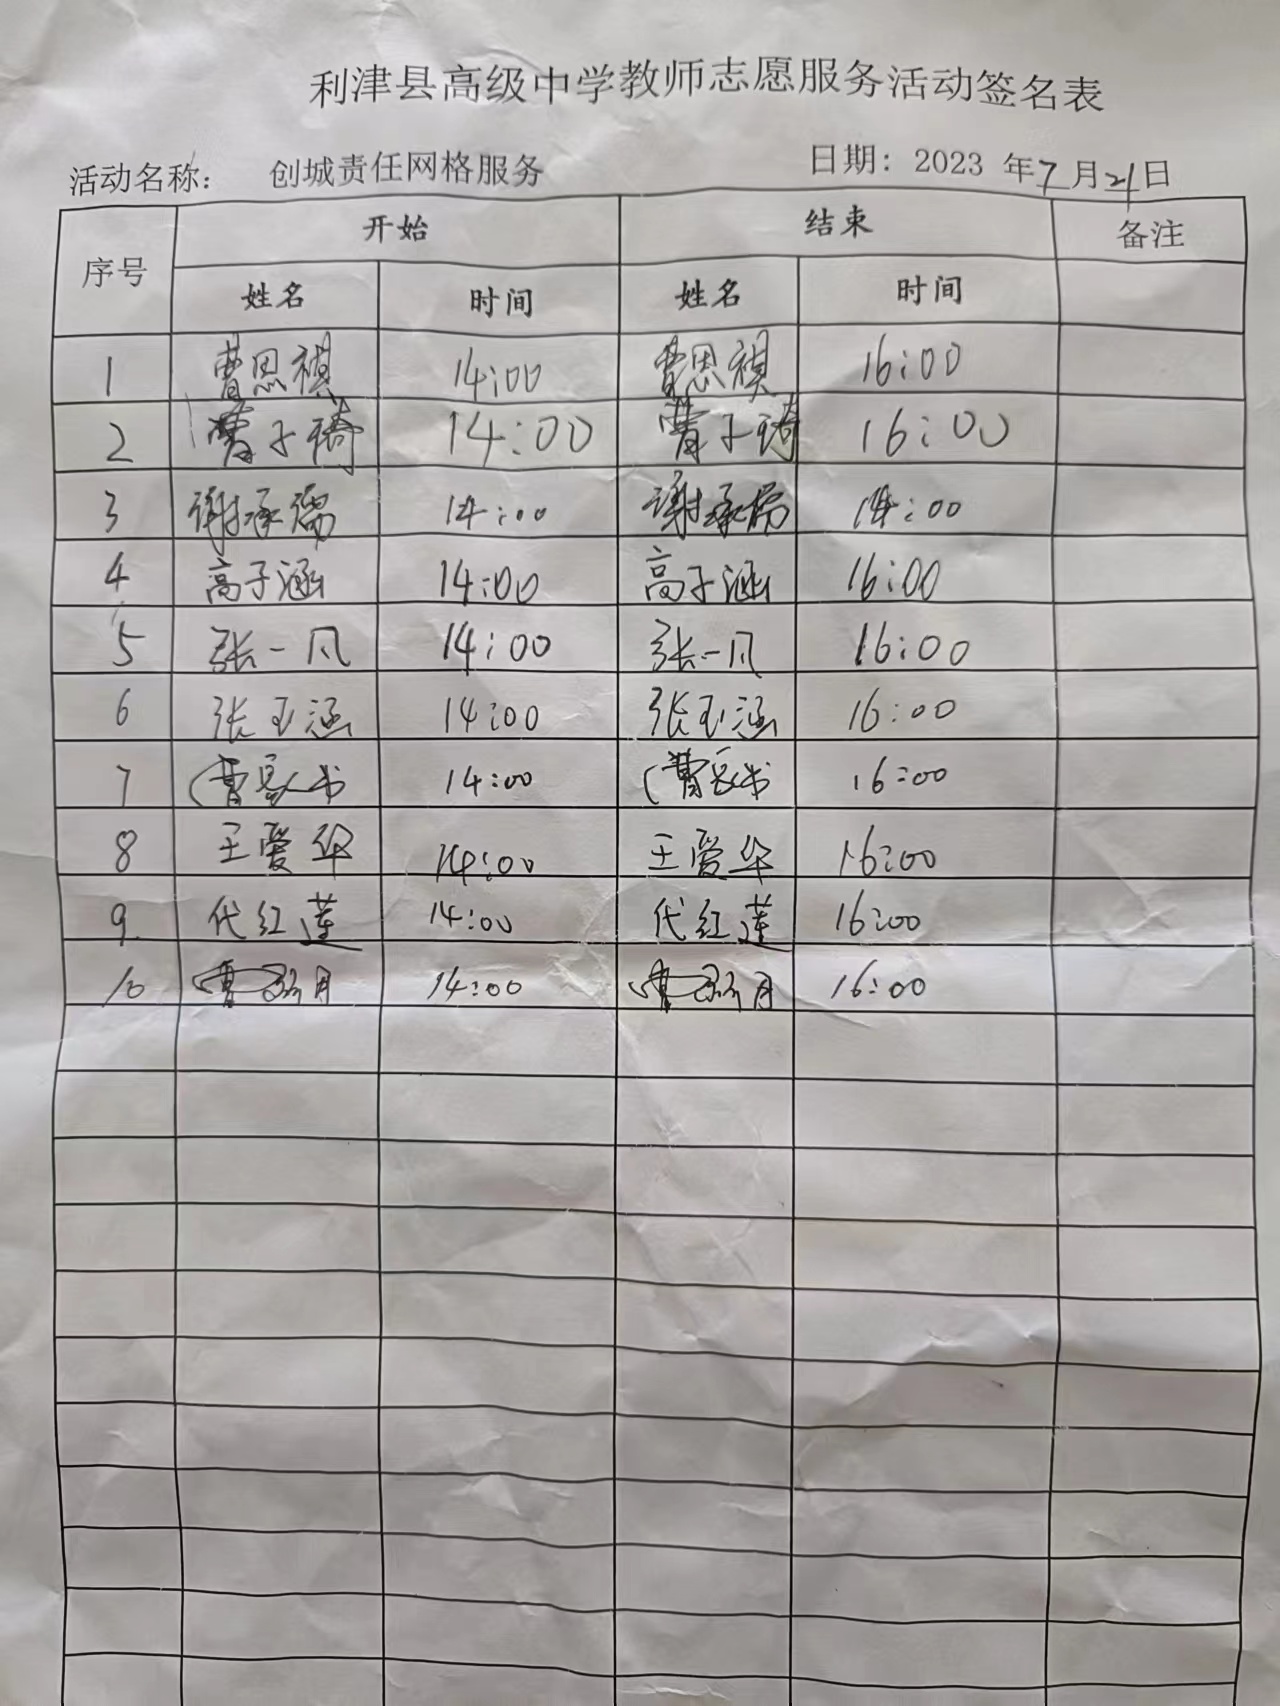 利津县高级中学教师志愿服务活动签名表
活动名称： 创城责任网格服务 日期：2023 年7月21日
序号 开始 结束 备注
姓名 时间 姓名 时间
1 曹思祺 14:00 曹思祺 16:00
2 曹子琦 14:00 曹子琦 16:00
3 谢承儒 14:00 谢承儒 14:00
4 高子涵 14:00 高子涵 16:00
5 张一凡 14:00 张一凡 16:00
6 张玉涵 14:00 张玉涵 16:00
7 曹 14:00 曹 16:00
8 王爱华 14:00 王爱华 16:00
9 代红莲 14:00 代红莲 16:00
10 曹 月 14:00 曹 月 16:00